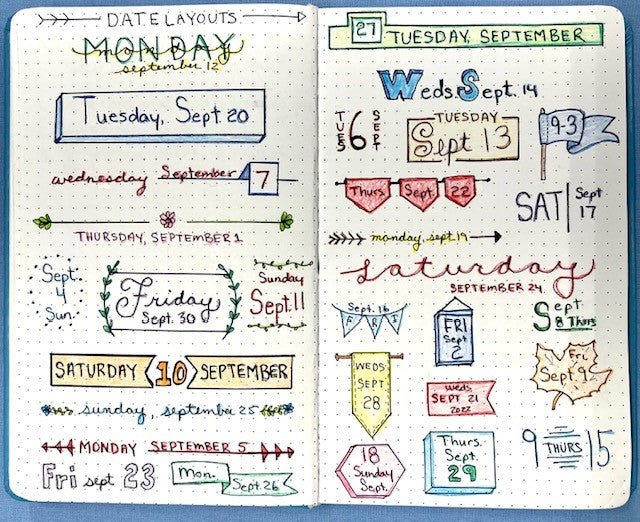 DATE LAYOUTS
MONDAY
monday
september 12
Tuesday, Sept 20
wednesday September 7
THURSDAY, SEPTEMBER 1
Sept.
4
Sun.
Friday
Sept. 30
Sunday
Sept. 11
SATURDAY 10 SEPTEMBER
sunday, september 25
MONDAY SEPTEMBER 5
Fri sept 23
Mon.
Sept. 26
27 TUESDAY, SEPTEMBER
Weds. Sept. 14
TUES 6 SEPT
TUESDAY
Sept 13
9-3
Thurs. Sept. 22
SAT Sept 17
monday, sept. 19
saturday
SEPTEMBER 24
Sept. 16
FRI
FRI
Sept
2
Sept
8 Thurs
WEDS
SEPT
28
Weds.
SEPT 21
2022
Fri
Sept. 9
18
Sunday
Sept.
Thurs.
Sept.
29
9 THURS 15